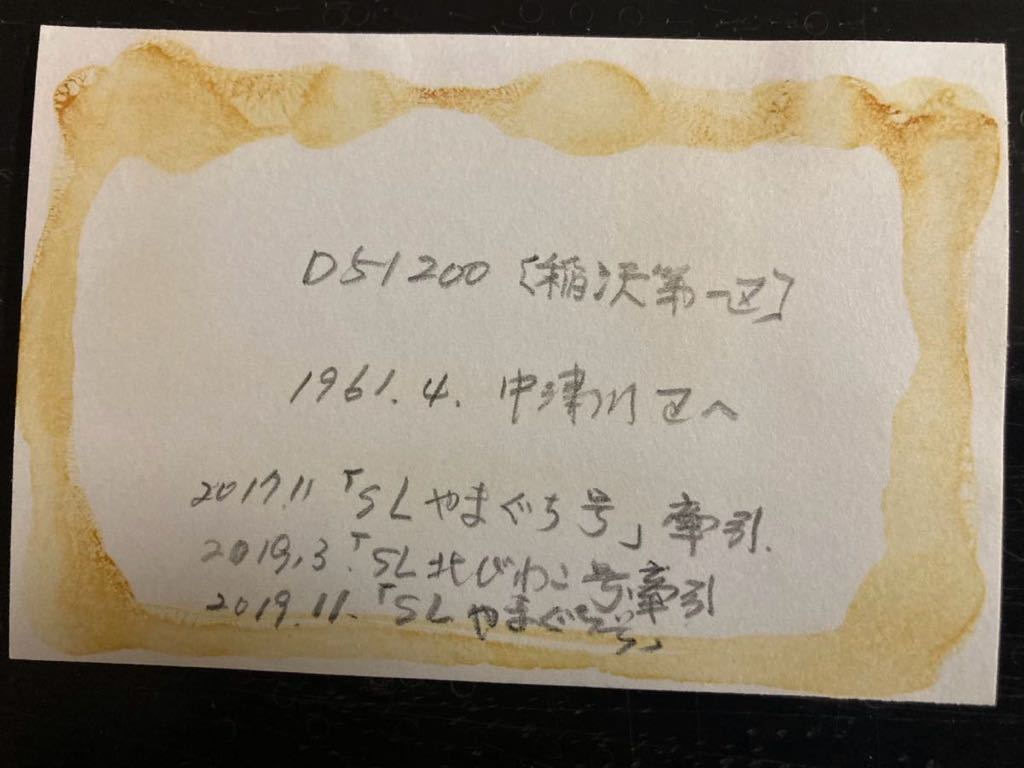 D51200〔稲沢第一区〕
1961.4. 中津川区へ
2017.11「SLやまぐち号」牽引.
2019.3.「SL北びわこ号」牽引
2019.11.「SLやまぐち号」